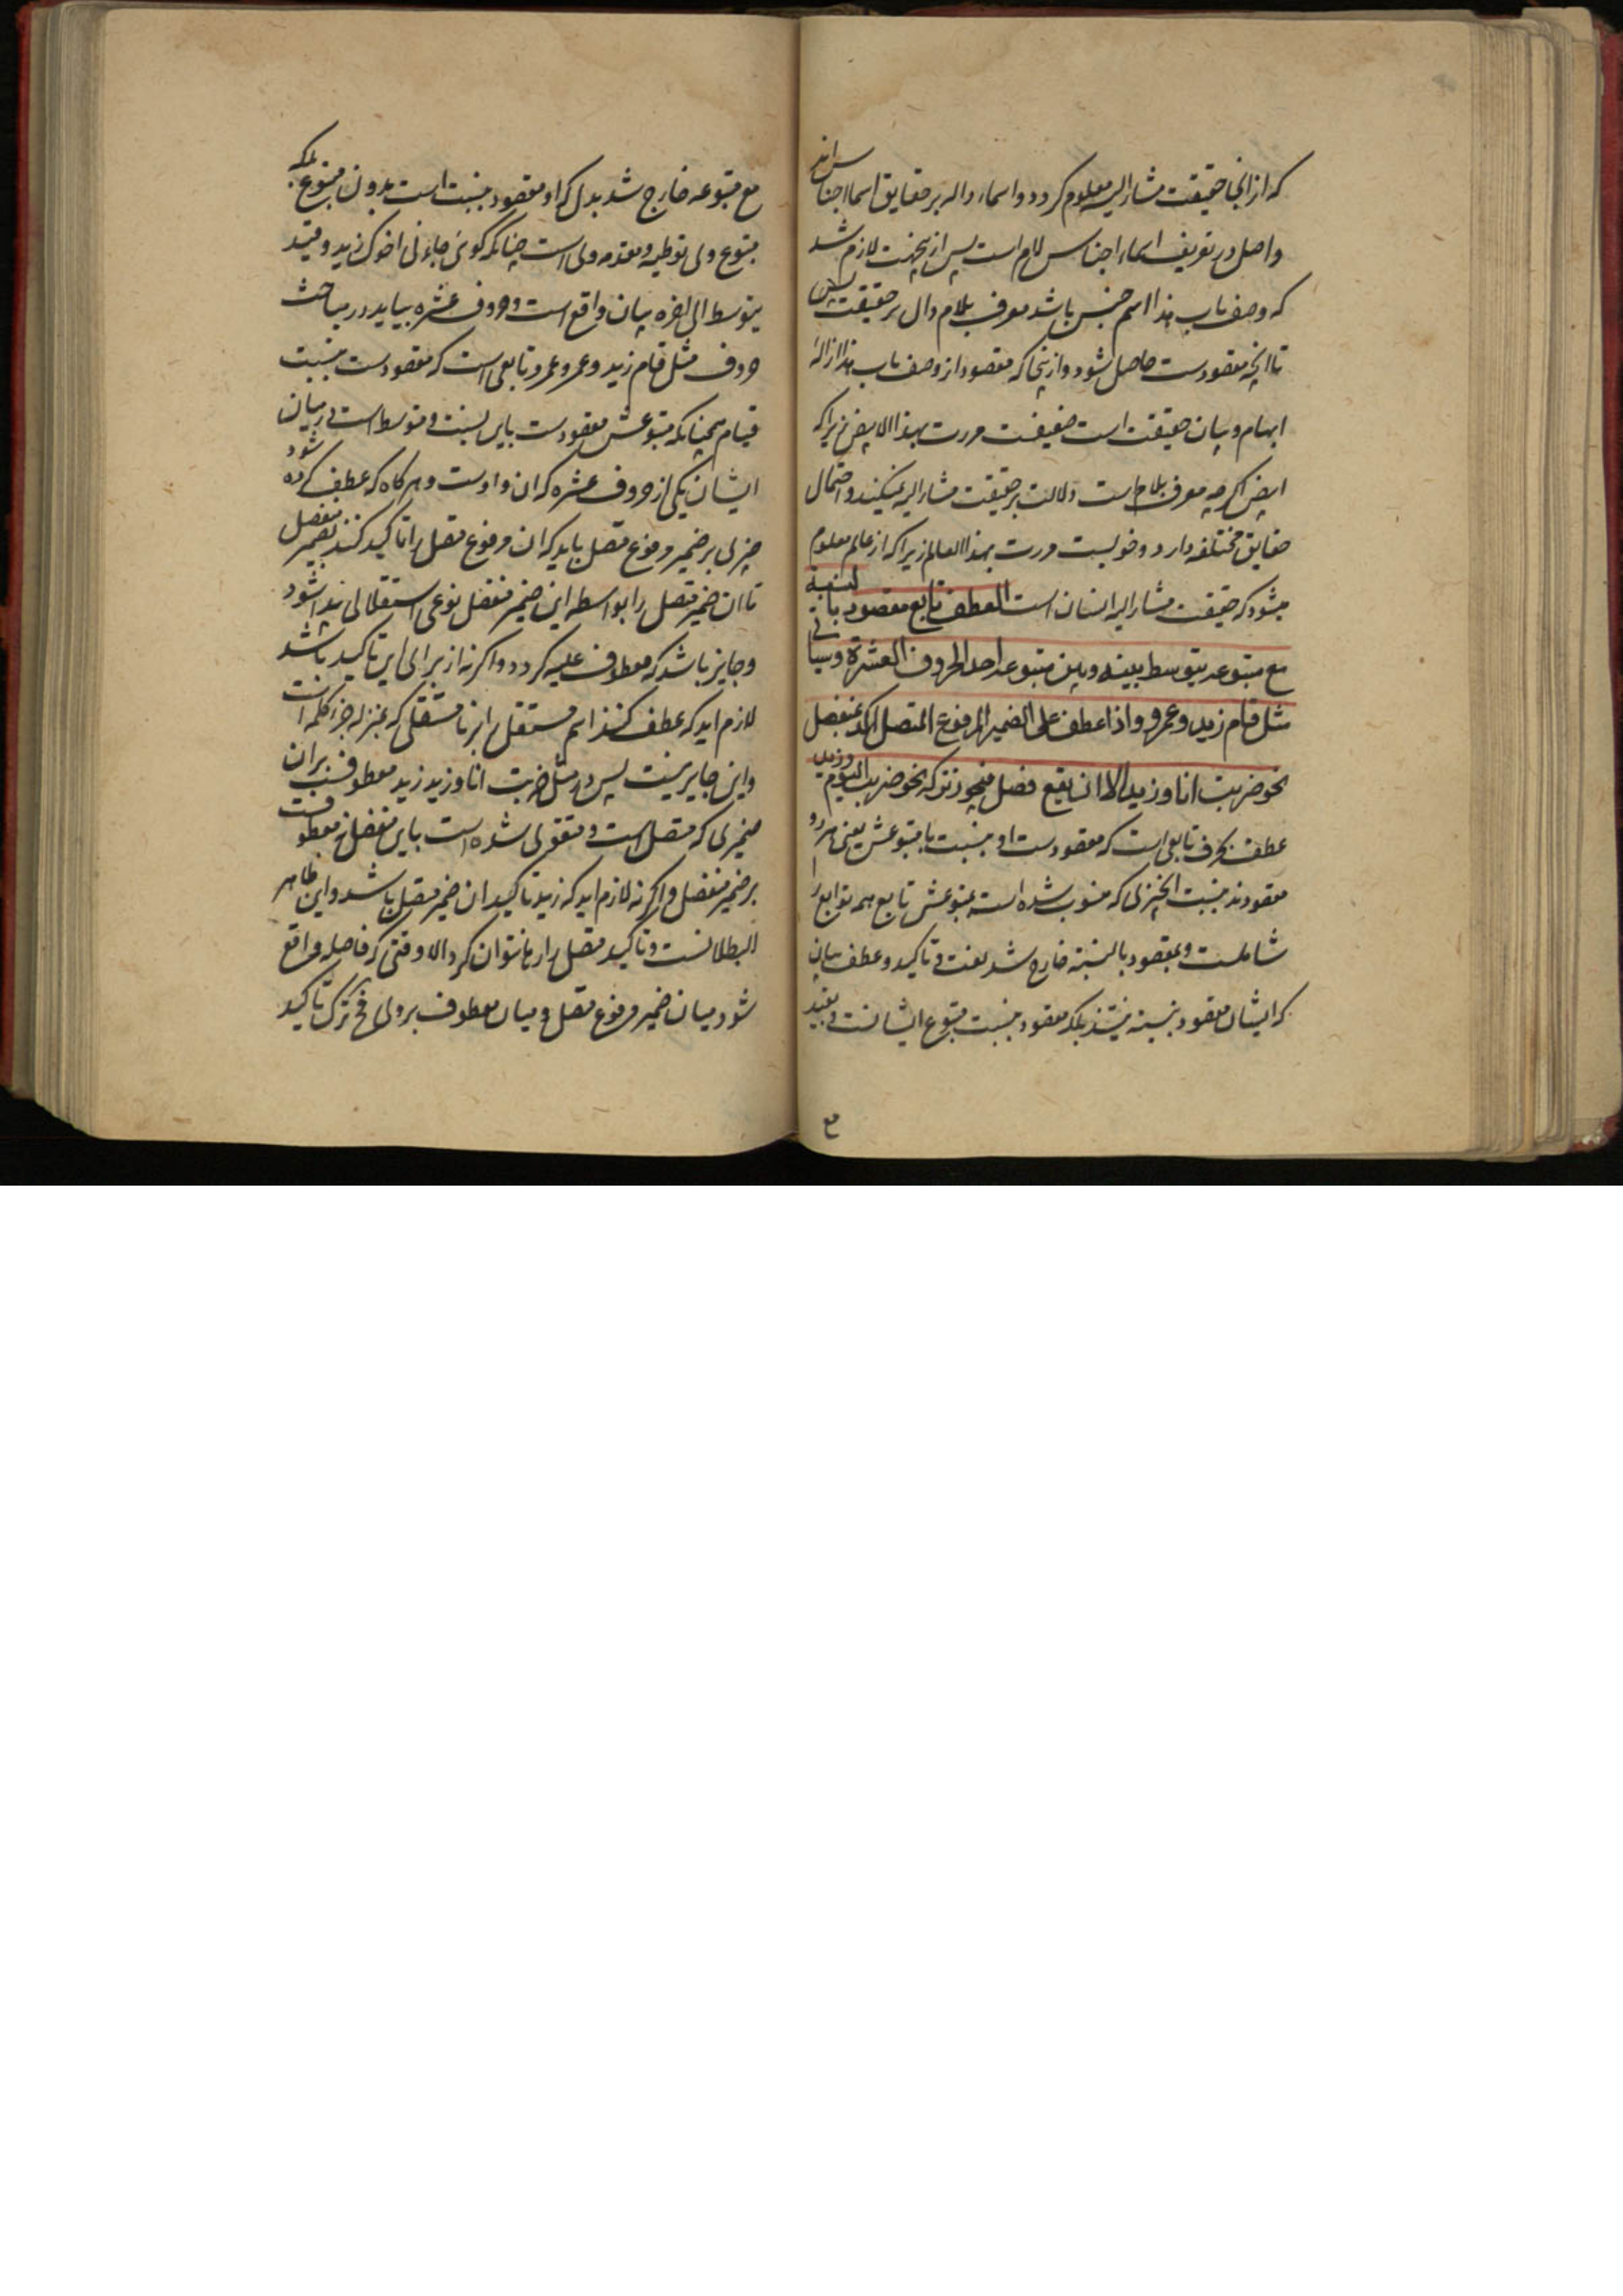 که از انجا حقیقت مشار الیه معلوم کردد و اسماء داله بر حقایق اسما اجناس اند
و اصل در تعریف اسماء اجناس لام است پس ازیجهت لازم شد
که وصف باب هذا اسم جنس باشد معرف بلام دال بر حقیقت جنس
تا انچه مقصودست حاصل شود و از ینجا که مقصود از وصف باب هذا ازاله
ابهام و بیان حقیقت است ضعیفست مررت بهذا الابیض زیرا که
ابیض اکرچه معرف بلام است دلالت بر حقیقت مشار الیه نمیکند و احتمال
حقایق مختلفه دارد و خوبست مررت بهذا العالم زیرا که از عالم معلوم
میشود که حقیقت مشار الیه انسان است العطف تابع مقصود بالنسبة
مع متبوعه یتوسط بینه وبین متبوعه احد الحروف العشرة وسیاتی
مثل قام زید وعمرو واذا عطف علی الضمیر المرفوع المتصل اکد بمنفصل
نحو ضربت انا وزید الا ان یقع فصل فیجوز ترکه نحو ضربت الیوم وزید
عطف بحرف تابعی است که مقصودست او بنسبت با متبوعش یعنی هر دو
مقصودند بنسبت الخبری که منسوب شده است بمتبوعش تابع همه توابع را
شاملست و بمقصود بالنسبة خارج شد نعت و تاکید و عطف بیان
که ایشان مقصود بنسبه نیستند بلکه مقصود بنسبت متبوع ایشانست و بقید
مع
مع متبوعه خارج شد بدل که او مقصود بنسبت است بدون متبوع بلکه
متبوع وی توطیه و مقدمه وی است چنانکه کوئی جاءنی اخوک زید و قید
یتوسط الی اخره بیان واقع است و حروف عشره بیاید در مباحث
حروف مثل قام زید و عمرو عمرو تابعی است که مقصودست بنسبت
قیام همچنانکه متبوعش مقصودست باین نسبت و متوسط است در میان
ایشان یکی از حروف عشره که ان واوست و هر کاه که عطف کرده شود
چیزی بر ضمیر مرفوع متصل باید که ان مرفوع متصل را تاکید کنند بضمیر منفصل
تا ان ضمیر متصل را بواسطه این ضمیر منفصل نوعی استقلالی پیدا شود
و جایز باشد که معطوف علیه کردد و اکر نه از برای این تاکید باشد
لازم اید که عطف کنند اسم مستقل را بر نا مستقلی که بمنزله جزء کلمه است
و این جایز نیست پس در مثل ضربت انا و زید زید معطوفست بران
ضمیری که متصل است و متقوی شده است باین منفصل نه معطوفست
بر ضمیر منفصل و اکر نه لازم اید که زید تاکید ان ضمیر متصل باشد و این ظاهر
البطلانست و تاکید متصل را رها نتوان کرد الا وقتی که فاصله واقع
شود میان ضمیر مرفوع متصل و میان معطوف بر وی فح ترک تاکید